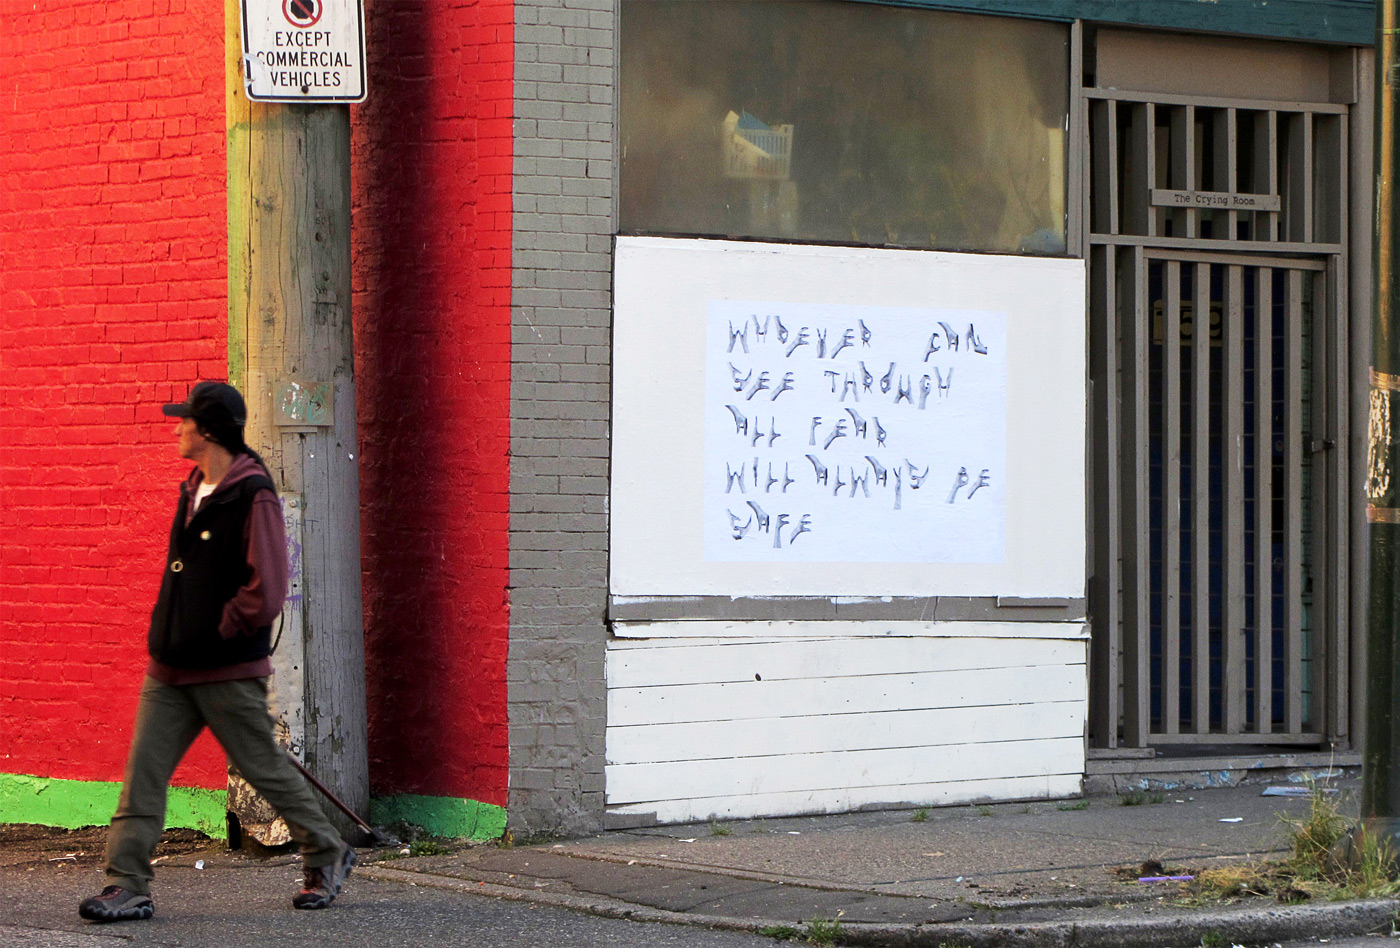 EXCEPT
COMMERCIAL
VEHICLES
The Crying Room
WHOEVER CAN
SEE THROUGH
ALL FEAR
WILL ALWAYS BE
SAFE